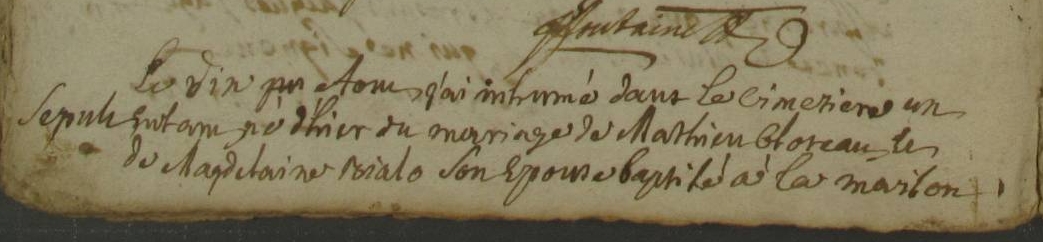 fontaine
Le vin jai inhumé dans le cimeziere un
Sepult enfan né dhier du mariage de Mathieu bloreau
de Magdelaine son Epouse baptisé a la maison